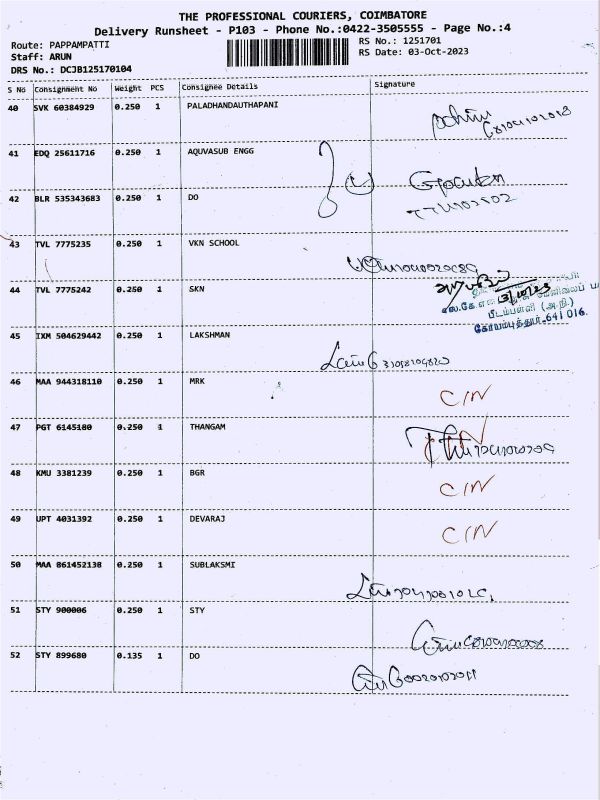 THE PROFESSIONAL COURIERS, COIMBATORE
Delivery Runsheet - P103 - Phone No.:0422-3505555 - Page No.:4
Route: PAPPAMPATTI RS No.: 1251701
Staff: ARUN RS Date: 03-Oct-2023
DRS No.: DCJB125170104
S No Consignment No Weight PCS Consignee Details Signature
40 SVK 60384929 0.250 1 PALADHANDAUTHAPANI
41 EDQ 25611716 0.250 1 AQUVASUB ENGG
42 BLR 535343683 0.250 1 DO
43 TVL 7775235 0.250 1 VKN SCHOOL
44 TVL 7775242 0.250 1 SKN
பீடம்பள்ளி (அ.நி.)
கோயம்புத்தூர்-641 016.
45 IXM 504629442 0.250 1 LAKSHMAN
46 MAA 944318110 0.250 1 MRK C/N
47 PGT 6145180 0.250 1 THANGAM C/N
48 KMU 3381239 0.250 1 BGR C/N
49 UPT 4031392 0.250 1 DEVARAJ C/N
50 MAA 861452138 0.250 1 SUBLAKSMI
51 STY 900006 0.250 1 STY
52 STY 899680 0.135 1 DO